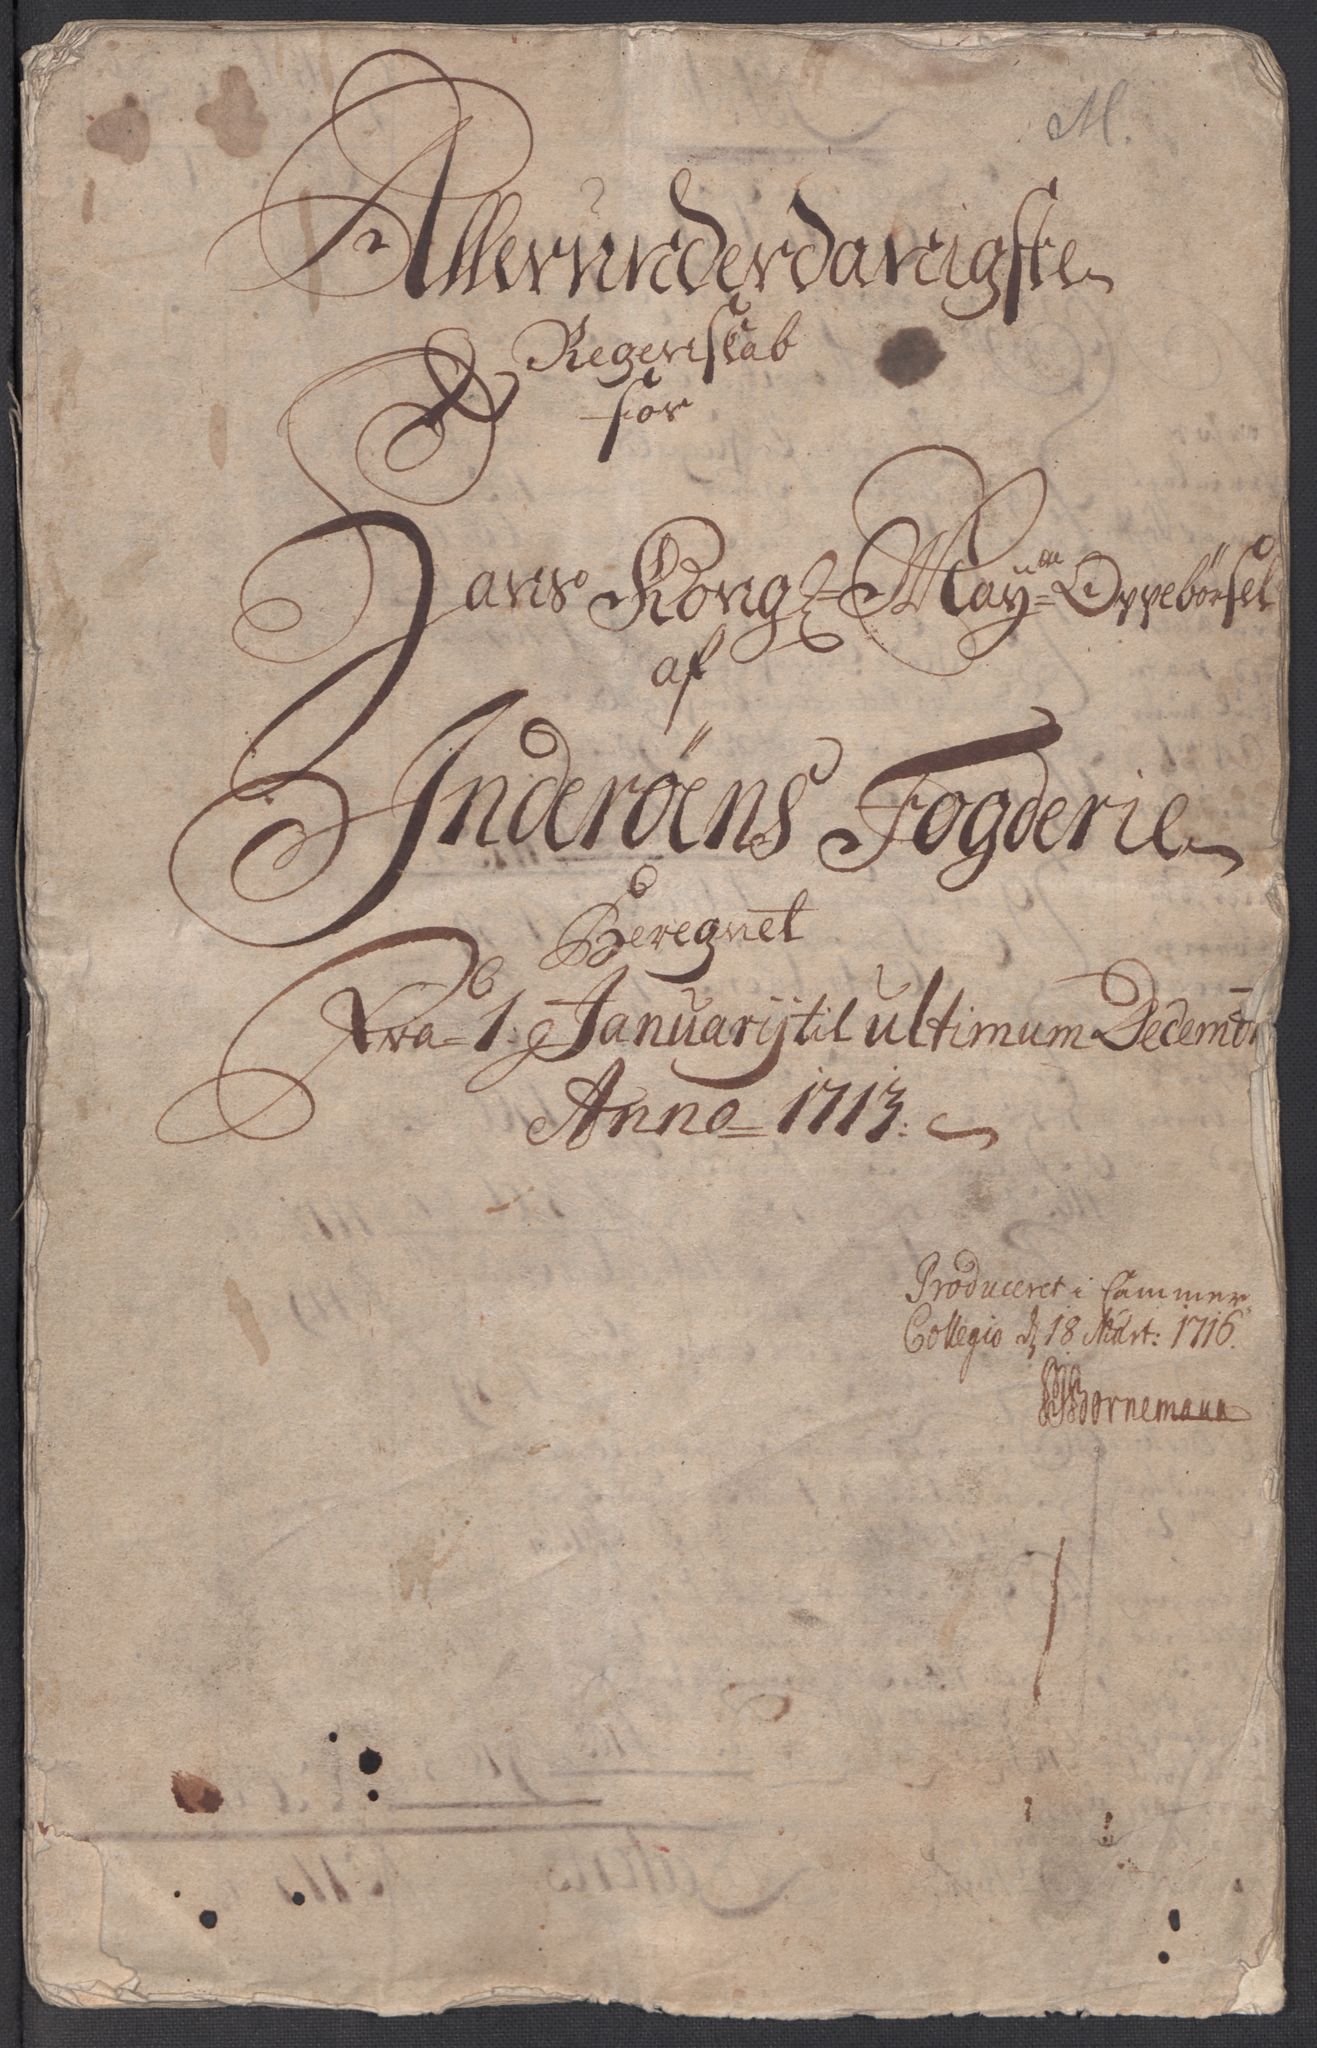 M.
Allerunderdanigste
Regenskab
for
Hans Kongl: May:ts Oppebørsel
af
Inderöens Fogderie
Beregnet
Fra 1. Januarij til ultimum Decembr
Anno 1713.
Produceret i Cammer
Collegio d 18 Mart: 1716.
Bornemann